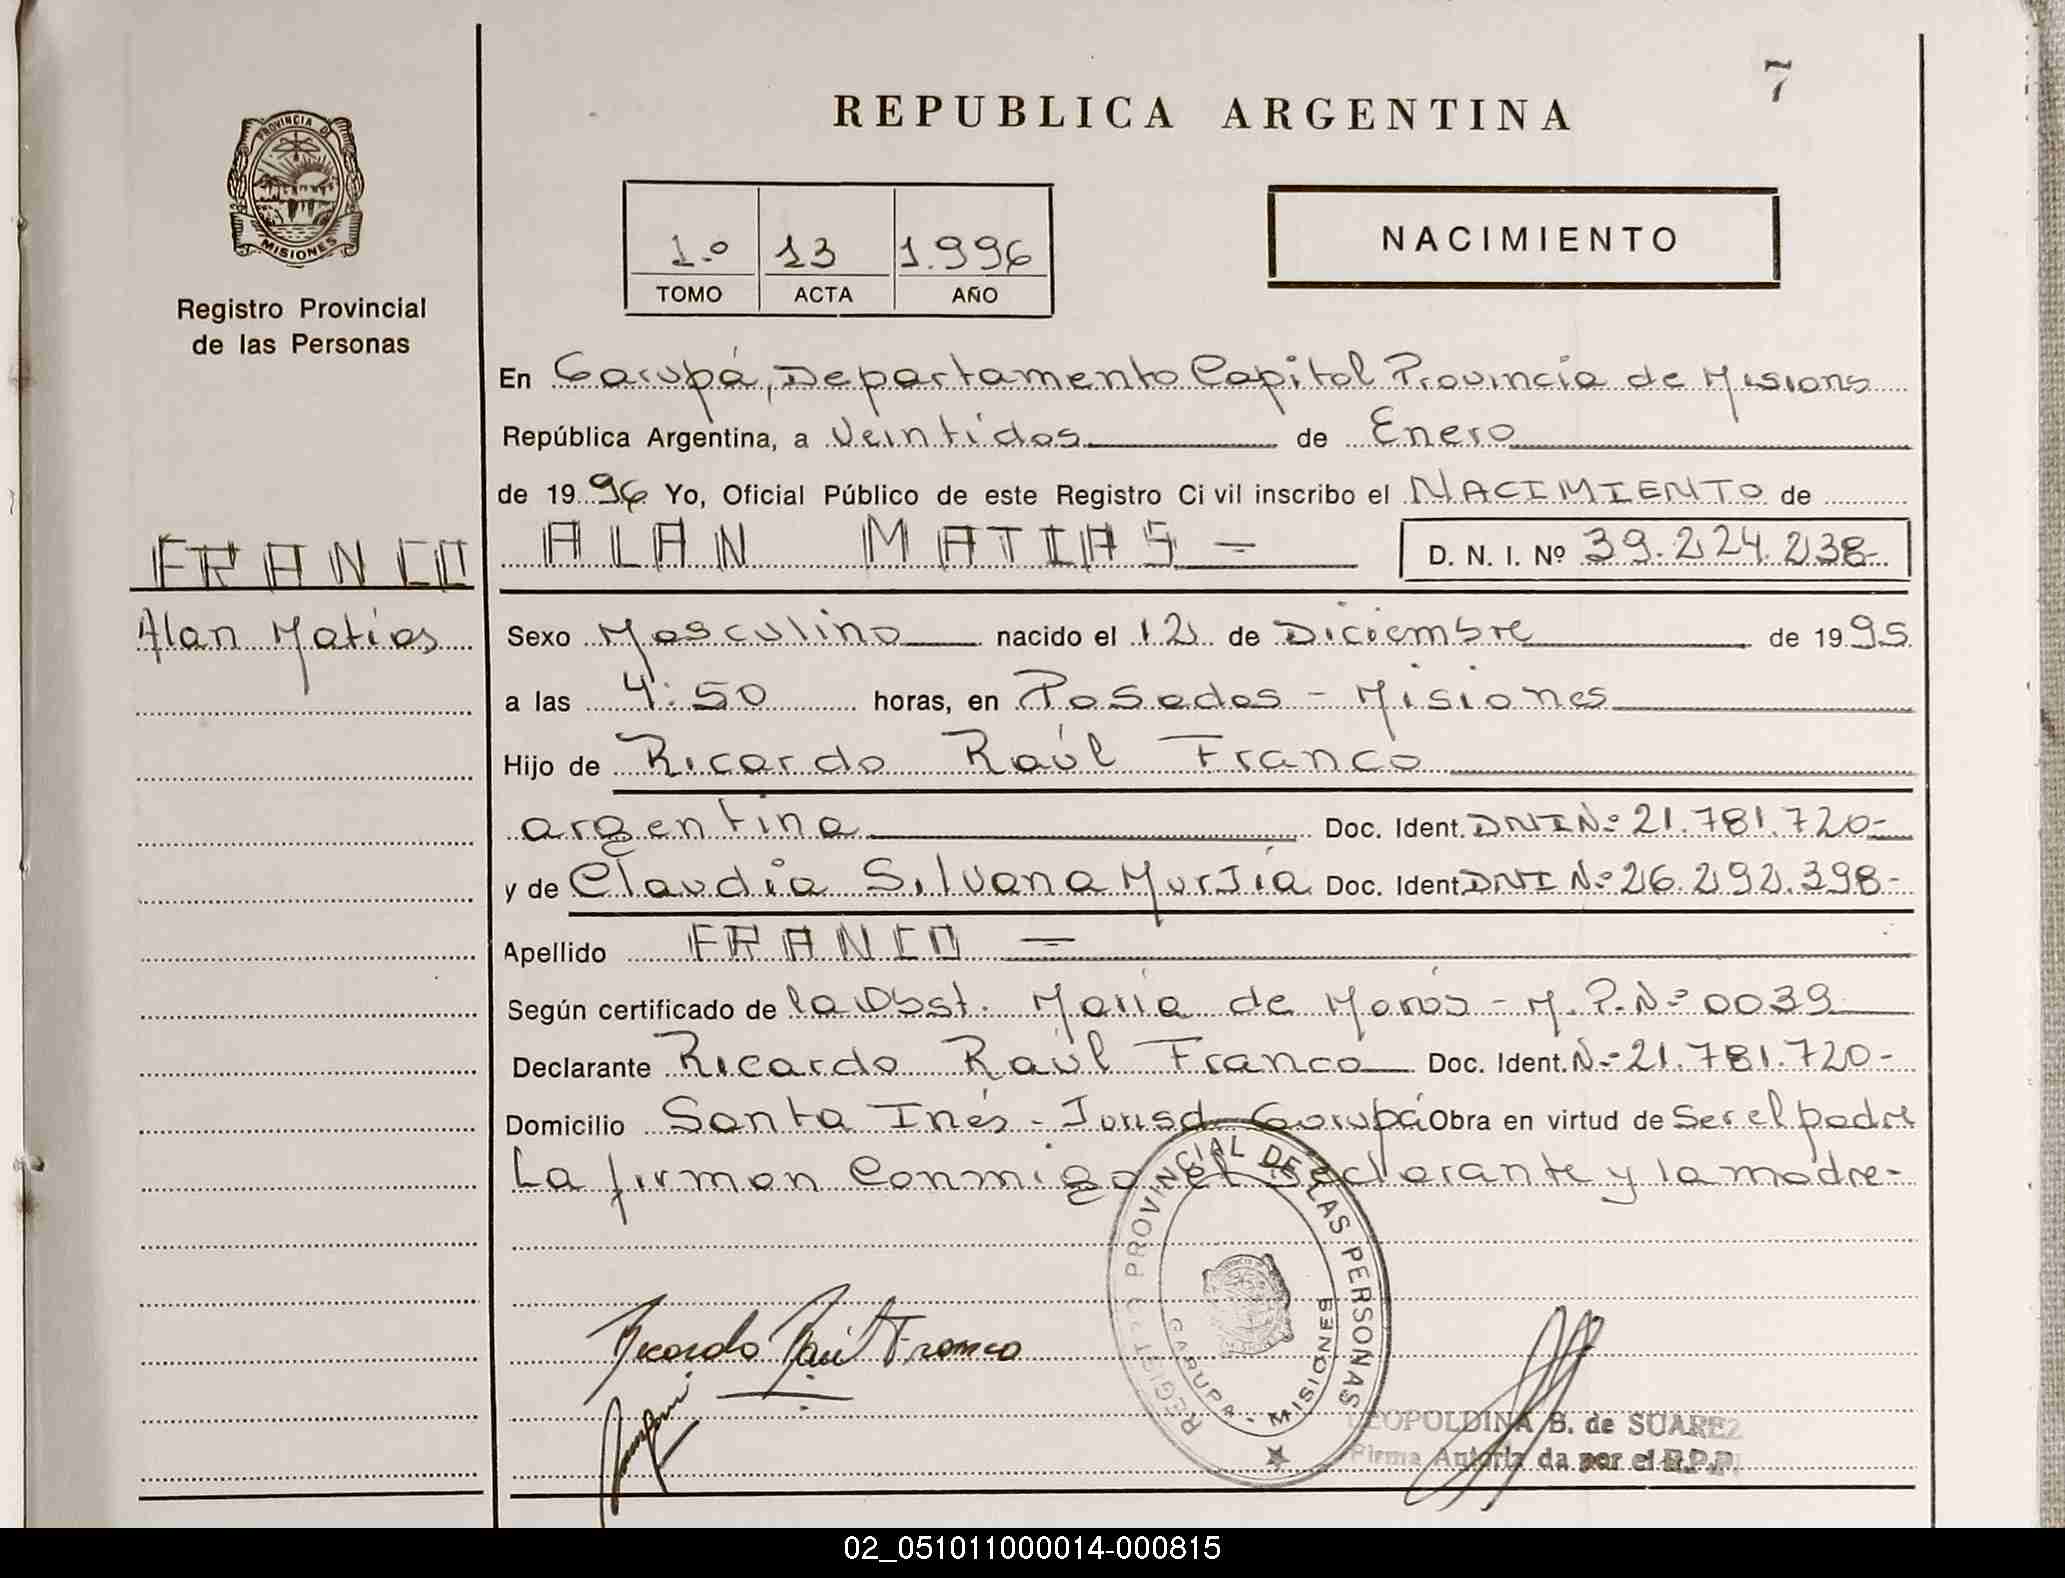 7
REPUBLICA ARGENTINA
PROVINCIA DE
MISIONES
Registro Provincial
de las Personas
1.º 13 1.996
TOMO ACTA AÑO
NACIMIENTO
En Garupá, Departamento Capital Provincia de Misions
República Argentina, a Veintidos de Enero
de 1996 Yo, Oficial Público de este Registro Civil inscribo el NACIMIENTO de
FRANCO
ALAN MATIAS =
D. N. I. Nº 39.224.238-
Alan Matías
Sexo Masculino nacido el 12 de Diciembre de 1995
a las 4:50 horas, en Posadas - Misiones
Hijo de Ricardo Raúl Franco
argentina Doc. Ident. DNI Nº 21.781.720-
y de Claudia Silvana Doc. Ident. DNI Nº 26.292.398-
Apellido FRANCO =
Según certificado de la Obst. María de - M.P.Nº 0039
Declarante Ricardo Raúl Franco Doc. Ident. Nº 21.781.720-
Domicilio Santa Inés - Jurisd. Garupá Obra en virtud de Ser el padre
La firman Conmigo el declarante y la madre-
Ricardo Raúl Franco
REGISTRO PROVINCIAL DE LAS PERSONAS
GARUPA - MISIONES
LEOPOLDINA B. de SUAREZ
Firma Autorizada por el R.P.P.
02_051011000014-000815